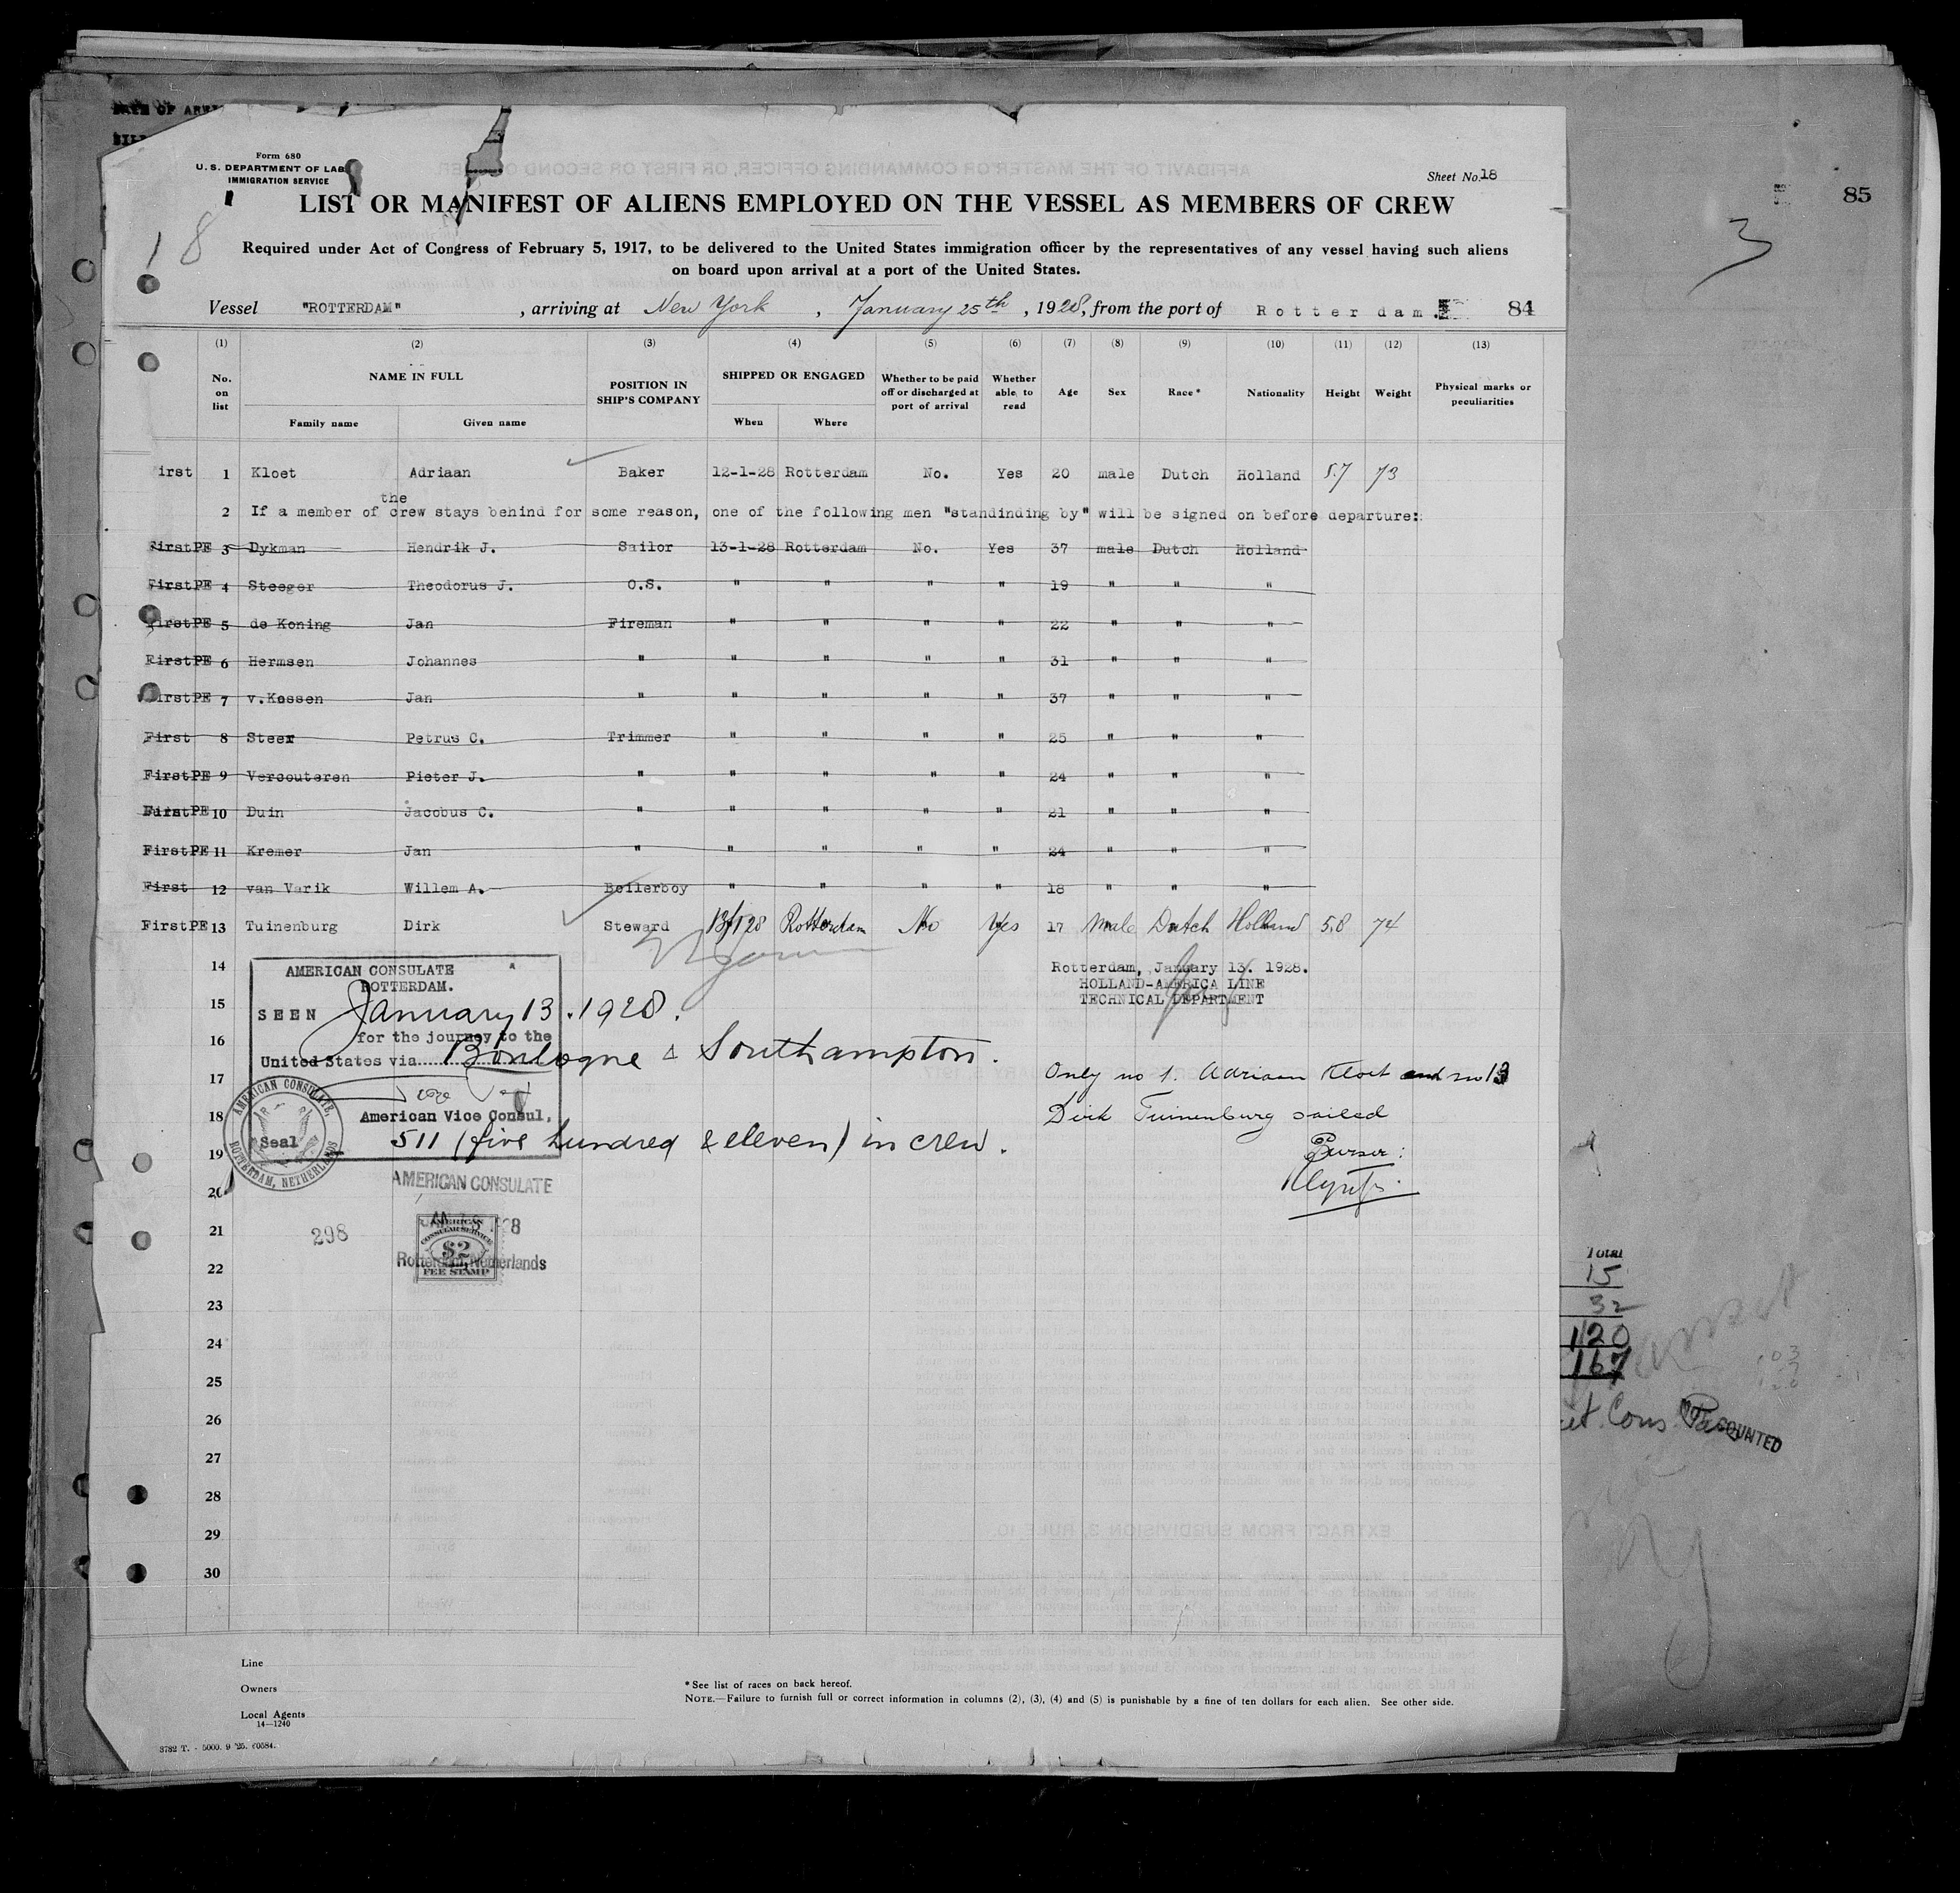 Form 680
U. S. DEPARTMENT OF LAB
IMMIGRATION SERVICE
Sheet No. 18
18
LIST OR MANIFEST OF ALIENS EMPLOYED ON THE VESSEL AS MEMBERS OF CREW
85
3
Required under Act of Congress of February 5, 1917, to be delivered to the United States immigration officer by the representatives of any vessel having such aliens
on board upon arrival at a port of the United States.
Vessel "ROTTERDAM" , arriving at New York , January 25th , 1928, from the port of Rotterdam. 84
(1) (2) (3) (4) (5) (6) (7) (8) (9) (10) (11) (12) (13)
No. on list NAME IN FULL Family name Given name POSITION IN SHIP'S COMPANY SHIPPED OR ENGAGED When Where Whether to be paid off or discharged at port of arrival Whether able to read Age Sex Race* Nationality Height Weight Physical marks or peculiarities
irst 1 Kloet Adriaan Baker 12-1-28 Rotterdam No. Yes 20 male Dutch Holland 5.7 73
the
2 If a member of crew stays behind for some reason, one of the following men "standinding by" will be signed on before departure:
First PE 3 Dykman Hendrik J. Sailor 13-1-28 Rotterdam No. Yes 37 male Dutch Holland
First PE 4 Steeger Theodorus J. O.S. " " " " 19 " " "
First PE 5 de Koning Jan Fireman " " " " 22 " " "
First PE 6 Hermsen Johannes " " " " " 31 " " "
First PE 7 v.Kossen Jan " " " " " 37 " " "
First 8 Steer Petrus C. Trimmer " " " " 25 " " "
First PE 9 Vercouteren Pieter J. " " " " " 24 " " "
First PE 10 Duin Jacobus C. " " " " " 21 " " "
First PE 11 Kremer Jan " " " " " 24 " " "
First 12 van Varik Willem A. Boilerboy " " " " 18 " " "
First PE 13 Tuinenburg Dirk Steward 13/1 28 Rotterdam No Yes 17 Male Dutch Holland 5.8 74
14
AMERICAN CONSULATE
ROTTERDAM.
Rotterdam, January 13. 1928.
HOLLAND-AMERICA LINE
TECHNICAL DEPARTMENT
15
SEEN January 13. 1928.
for the journey to the
16
United States via Boulogne & Southampton.
17
Only no 1. Adriaan Kloet and no 13
Dirk Tuinenburg sailed
Purser:
18
American Vice Consul,
AMERICAN CONSULATE, ROTTERDAM, NETHERLANDS
Seal
511 (five hundred & eleven) in crew.
19
AMERICAN CONSULATE
20
21
298
AMERICAN CONSULAR SERVICE $2 FEE STAMP
Rotterdam, Netherlands
22
23
24
25
26
27
28
29
30
Total
15
32
120
167
Cons
NOT COUNTED
Line
Owners
Local Agents
14—1240
* See list of races on back hereof.
NOTE.—Failure to furnish full or correct information in columns (2), (3), (4) and (5) is punishable by a fine of ten dollars for each alien. See other side.
3782 T. - 5000. 9 '25.